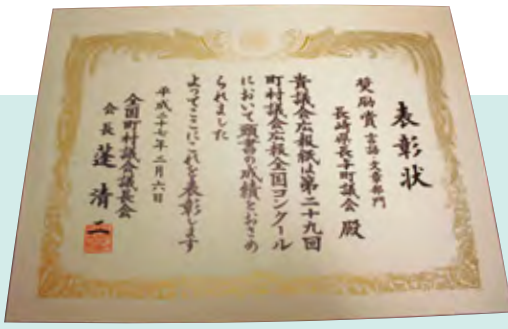 表彰状
奨励賞 言語・文章部門
長崎県長与町議会 殿
貴議会広報紙は第二十九回
町村議会広報全国コンクール
において頭書の成績をおさめ
られました
よってここにこれを表彰します
平成二十七年二月六日
全国町村議会議長会
会長 蓬 清二